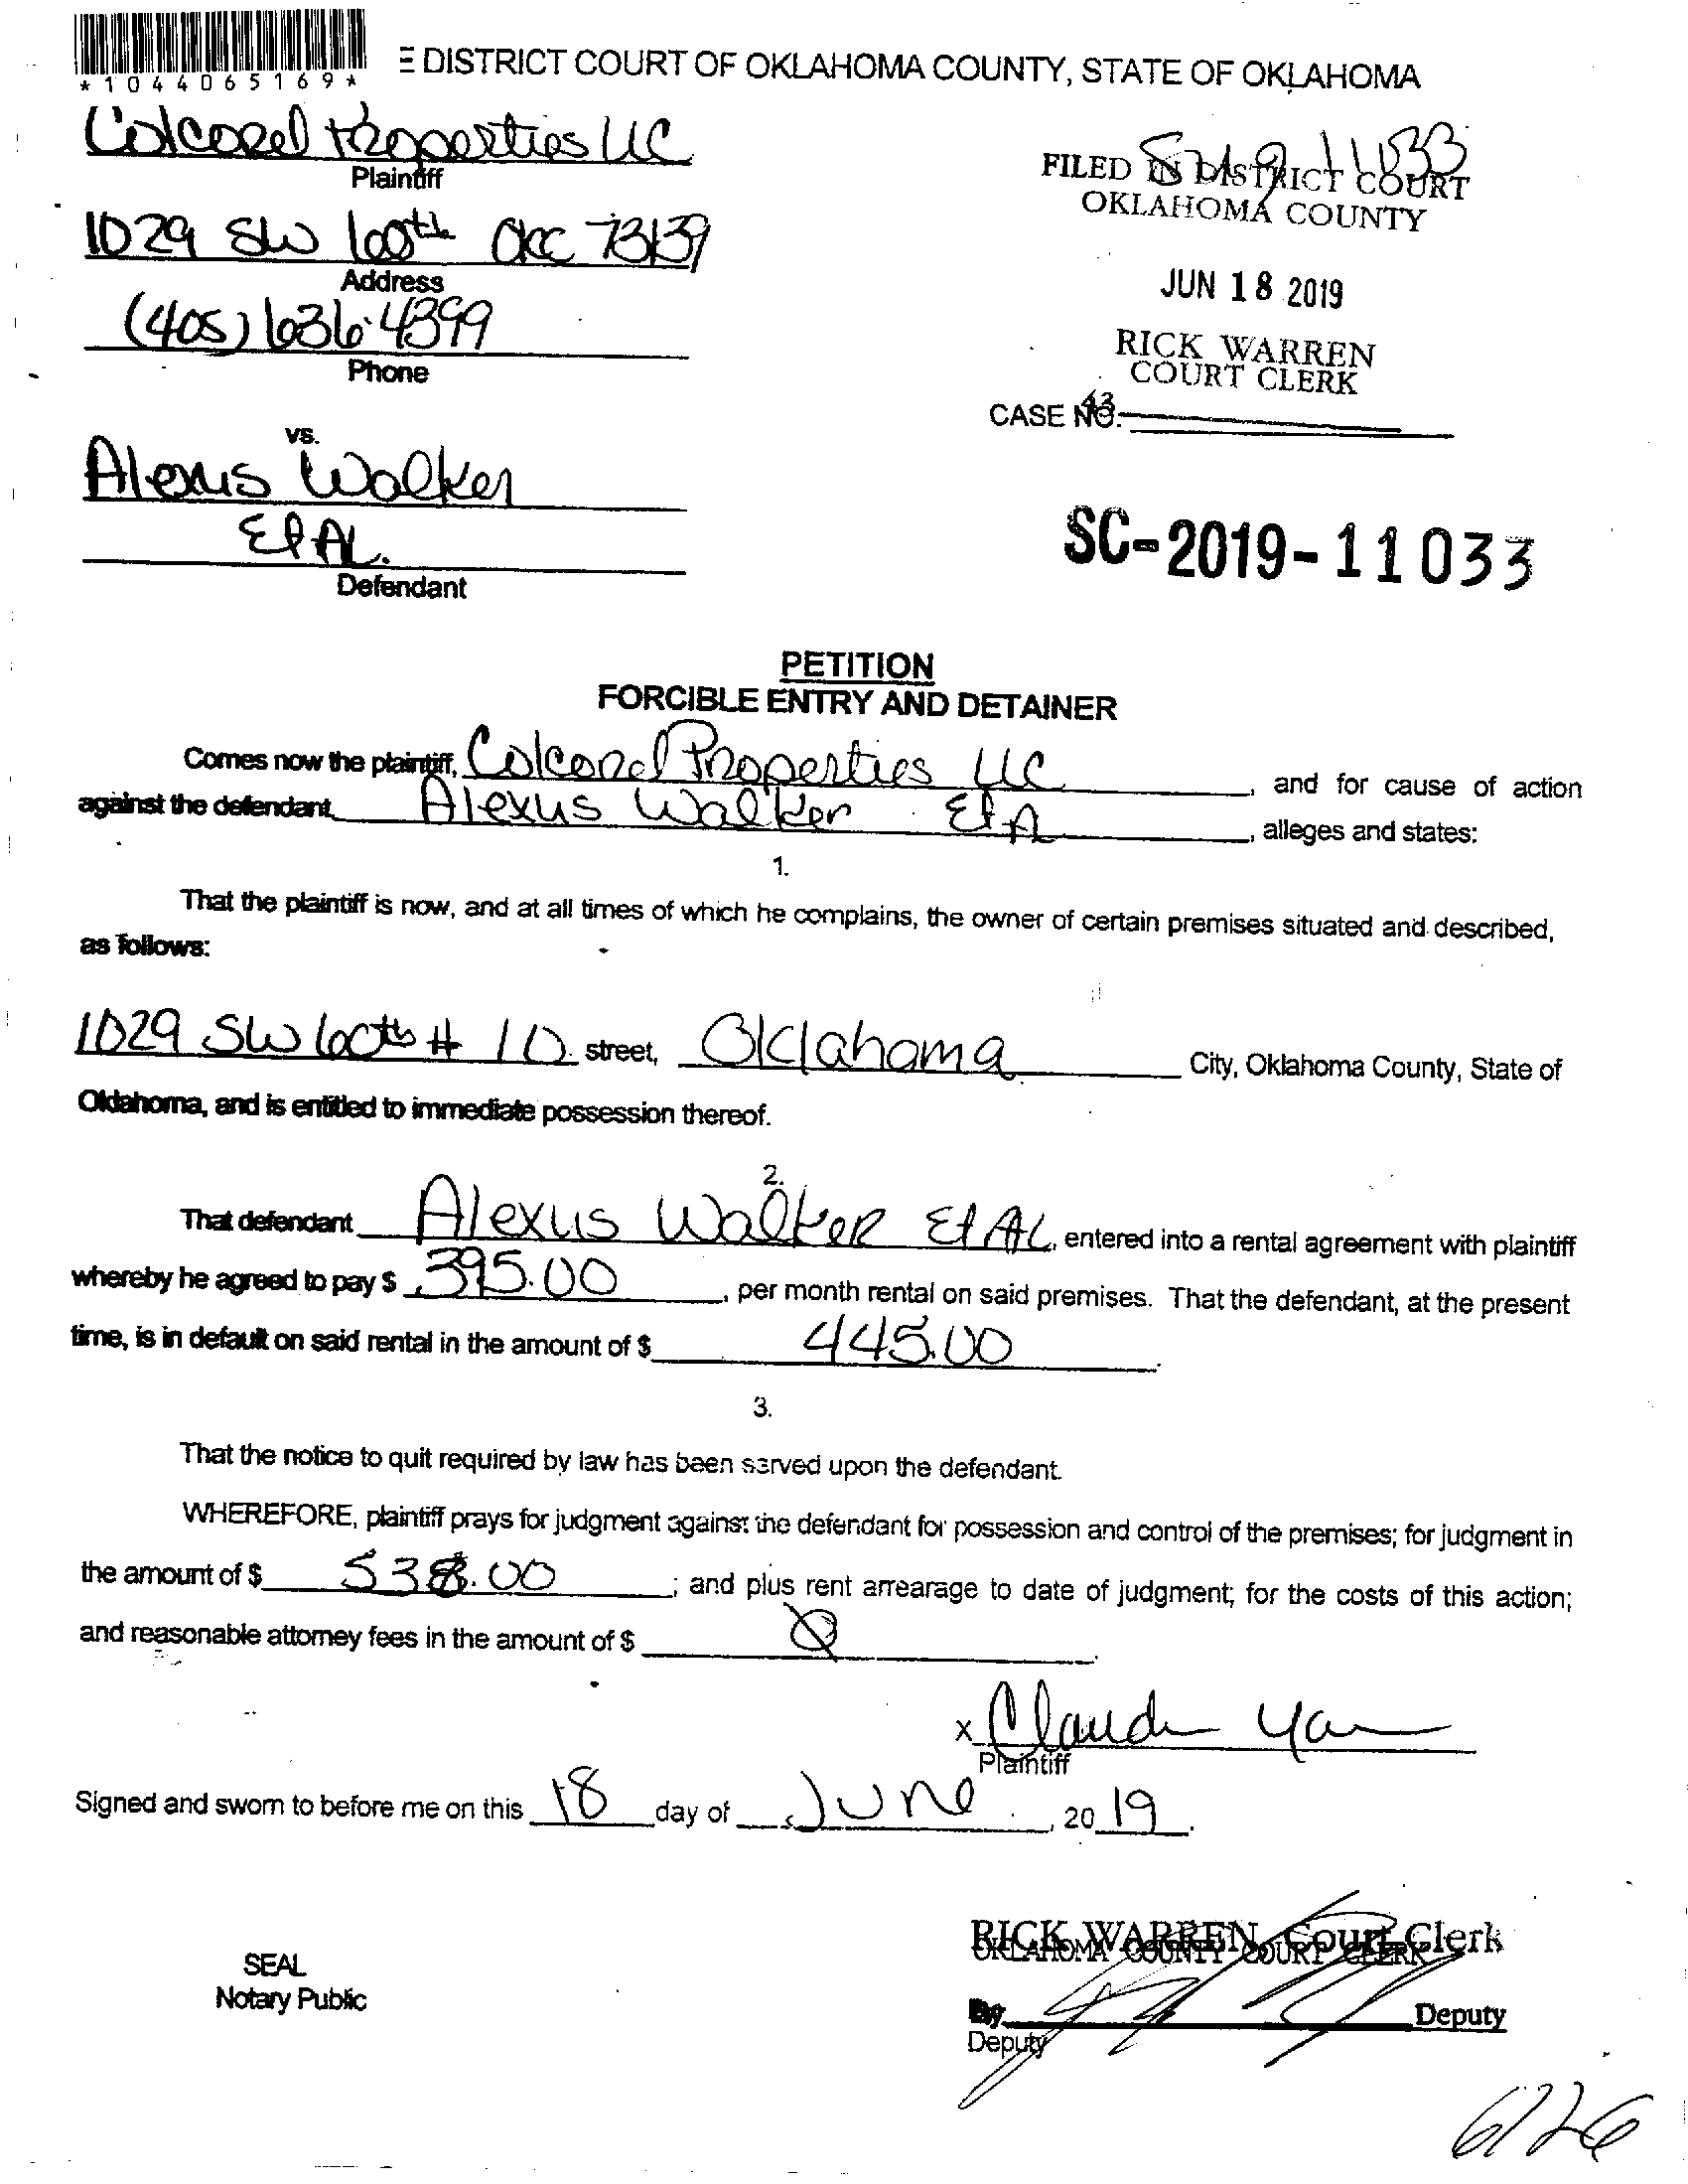 *1044065169*
E DISTRICT COURT OF OKLAHOMA COUNTY, STATE OF OKLAHOMA
Colcord Properties LLC
Plaintiff
FILED IN DISTRICT COURT
OKLAHOMA COUNTY
1029 SW 60th OKC 73139
Address
JUN 18 2019
(405) 636-4399
Phone
RICK WARREN
COURT CLERK
43
CASE NO.
vs.
Alexus Walker
Et AL.
Defendant
SC-2019-11033
PETITION
FORCIBLE ENTRY AND DETAINER
Comes now the plaintiff, Colcord Properties LLC, and for cause of action
against the defendant Alexus Walker Et A, alleges and states:
1.
That the plaintiff is now, and at all times of which he complains, the owner of certain premises situated and described,
as follows:
1029 SW 60th # 10 street, Oklahoma City, Oklahoma County, State of
Oklahoma, and is entitled to immediate possession thereof.
2.
That defendant Alexus Walker Et AL, entered into a rental agreement with plaintiff
whereby he agreed to pay $ 395.00, per month rental on said premises. That the defendant, at the present
time, is in default on said rental in the amount of $ 445.00.
3.
That the notice to quit required by law has been served upon the defendant.
WHEREFORE, plaintiff prays for judgment against the defendant for possession and control of the premises; for judgment in
the amount of $ 538.00; and plus rent arrearage to date of judgment; for the costs of this action;
and reasonable attorney fees in the amount of $ Ø.
x Claudia
Plaintiff
Signed and sworn to before me on this 18 day of June, 2019.
RICK WARREN, Court Clerk
OKLAHOMA COUNTY COURT CLERK
SEAL
Notary Public
By Deputy
Deputy
6/26